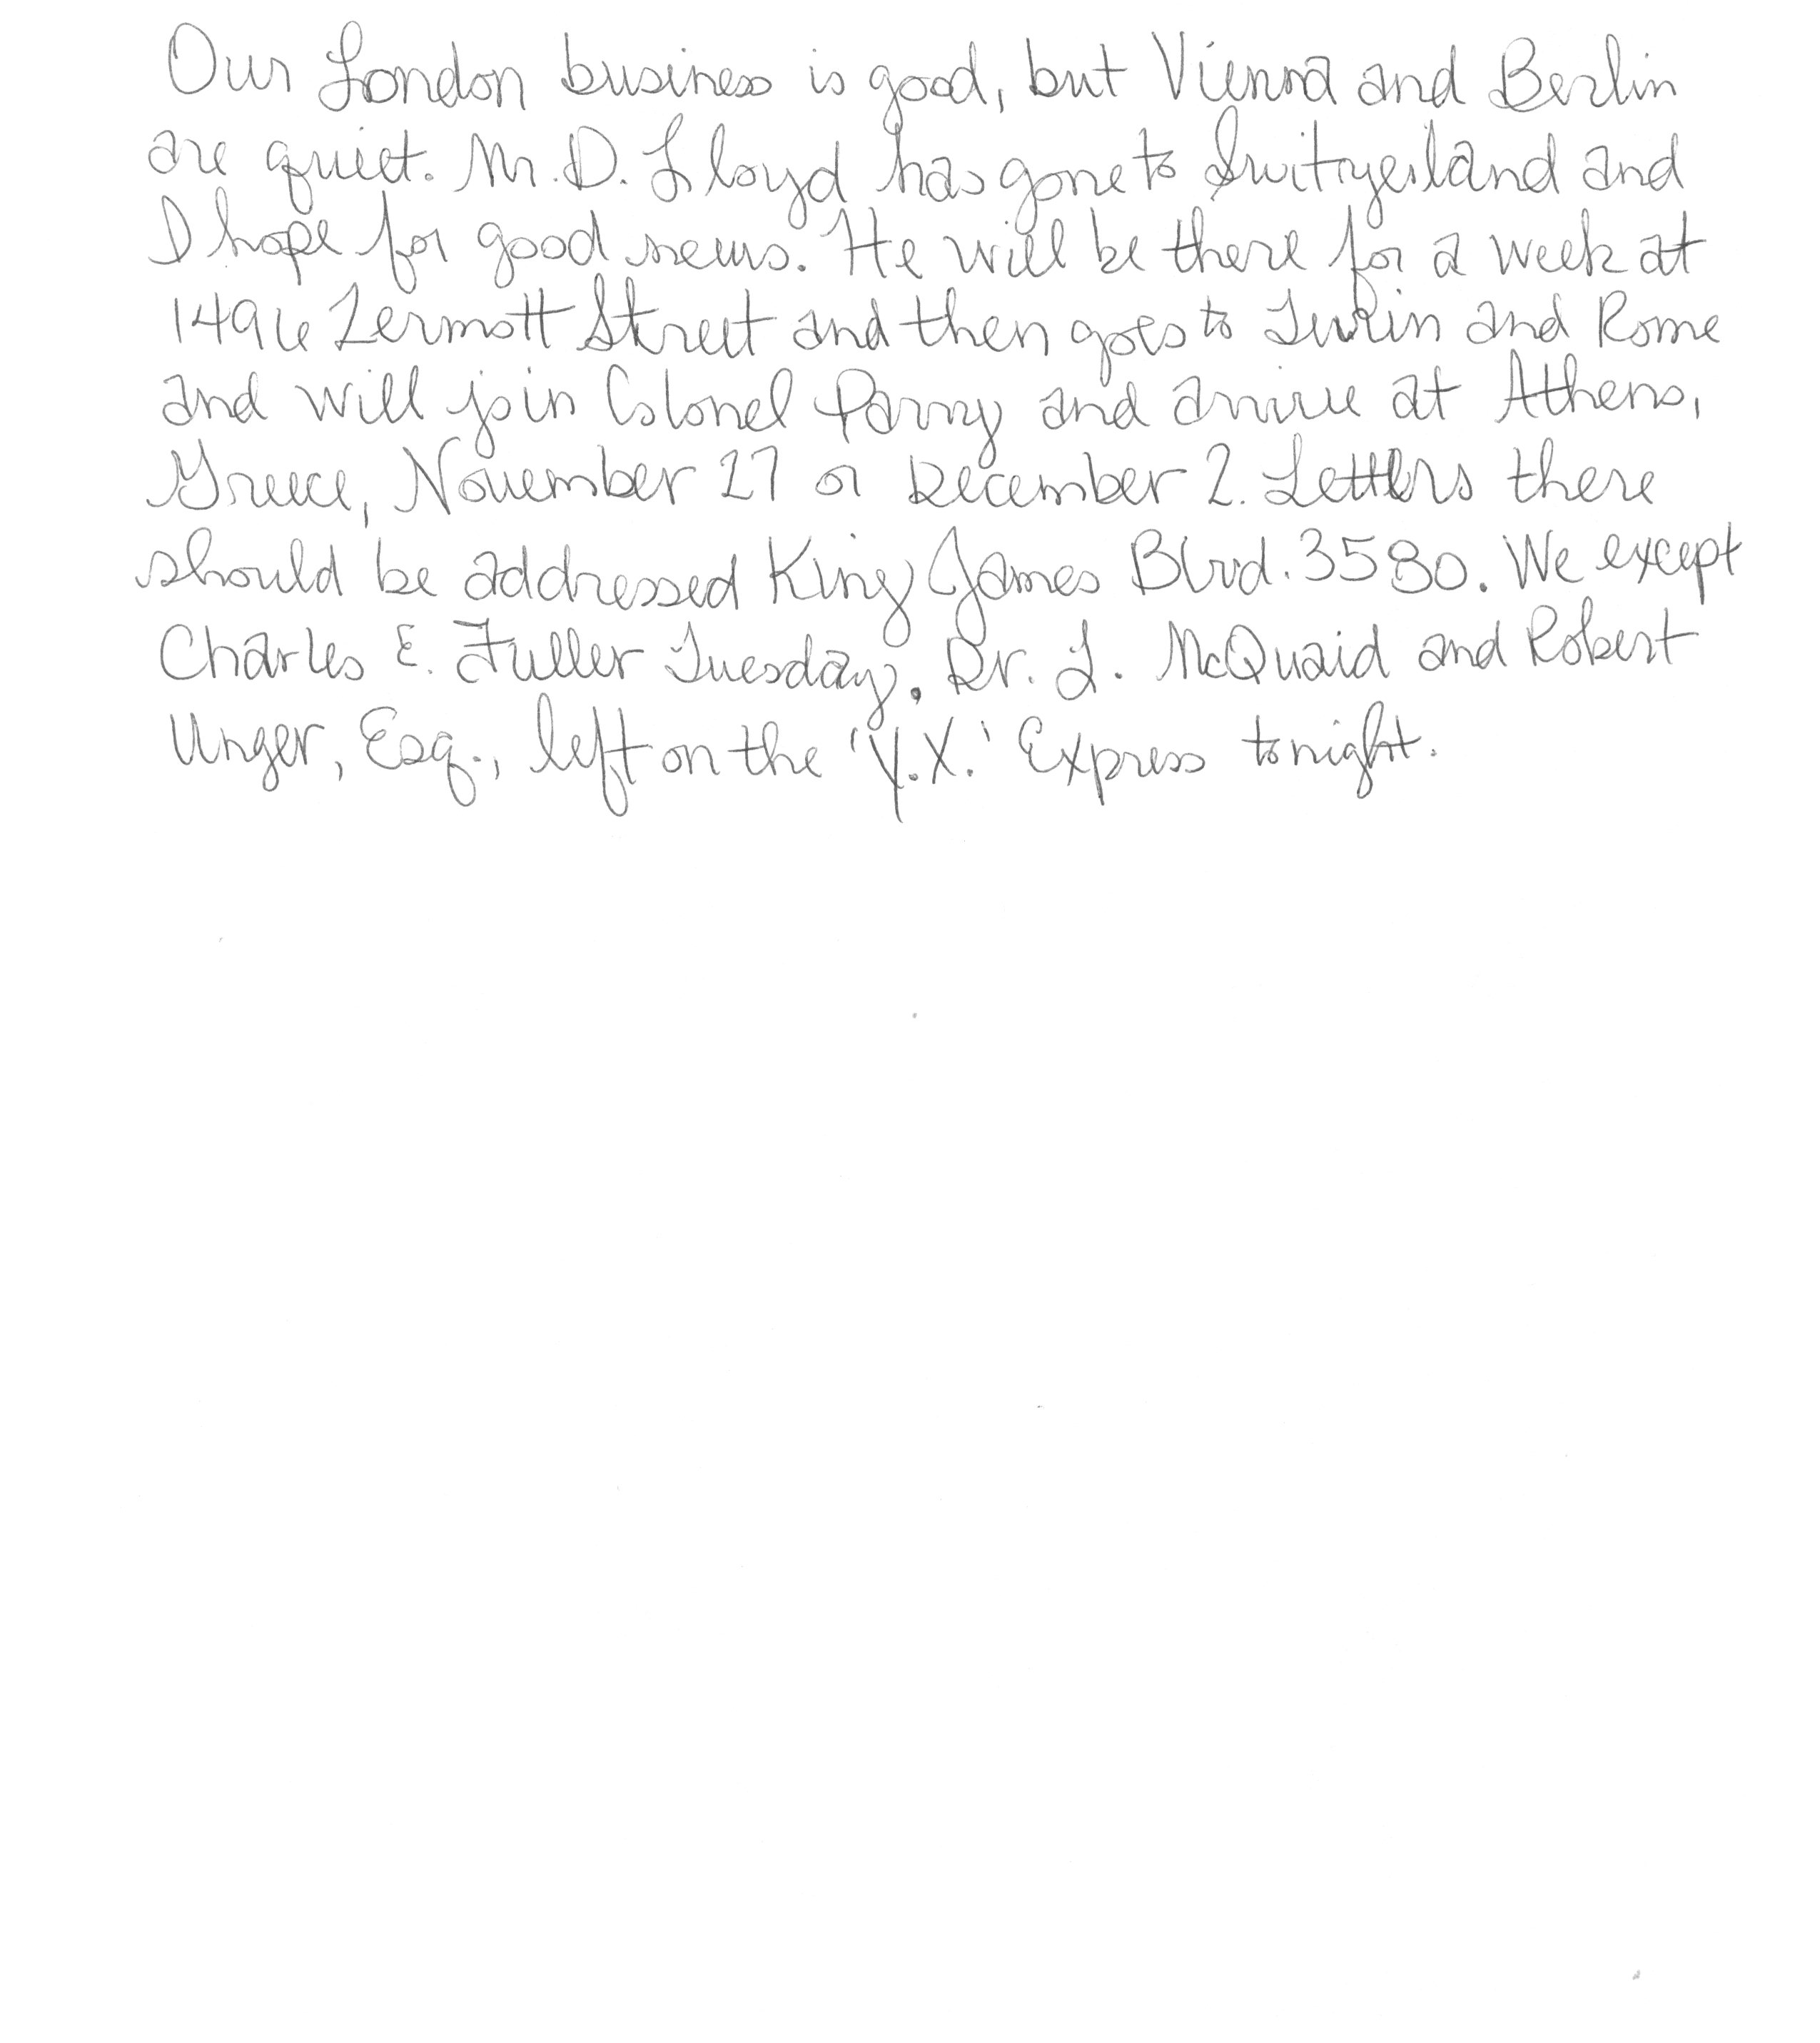 Our London business is good, but Vienna and Berlin
are quiet. Mr. D. Lloyd has gone to Switzerland and
I hope for good news. He will be there for a week at
1496 Zermott Street and then goes to Turin and Rome
and will join Colonel Parry and arrive at Athens,
Greece, November 27 or December 2. Letters there
should be addressed King James Blvd. 3580. We except
Charles E. Fuller Tuesday. Dr. L. McQuaid and Robert
Unger, Esq., left on the 'Y.X.' Express tonight.